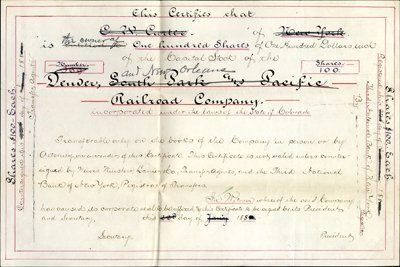 This Certifies that
C. W. Carter of New York
the owner of
is One hundred Shares of One Hundred Dollars each
of the Capital Stock of the
and New Orleans
Number
Shares
100.
Denver, South Park and Pacific
Railroad Company.
incorporated under the laws of the State of Colorado
Transferable only on the books of the Company in person or by
Attorney on surrender of this Certificate. This Certificate is not valid unless counter-
signed by Transfer Agents, and the Third National
Bank of New York, Registrar of Transfers.
In Witness whereof the said Company
has caused its corporate seal to be affixed & this Certificate to be signed by its President
and Secretary, this day of 188
Secretary.
President
Shares $100. Each.
Transfer Agents
Shares $100. Each.